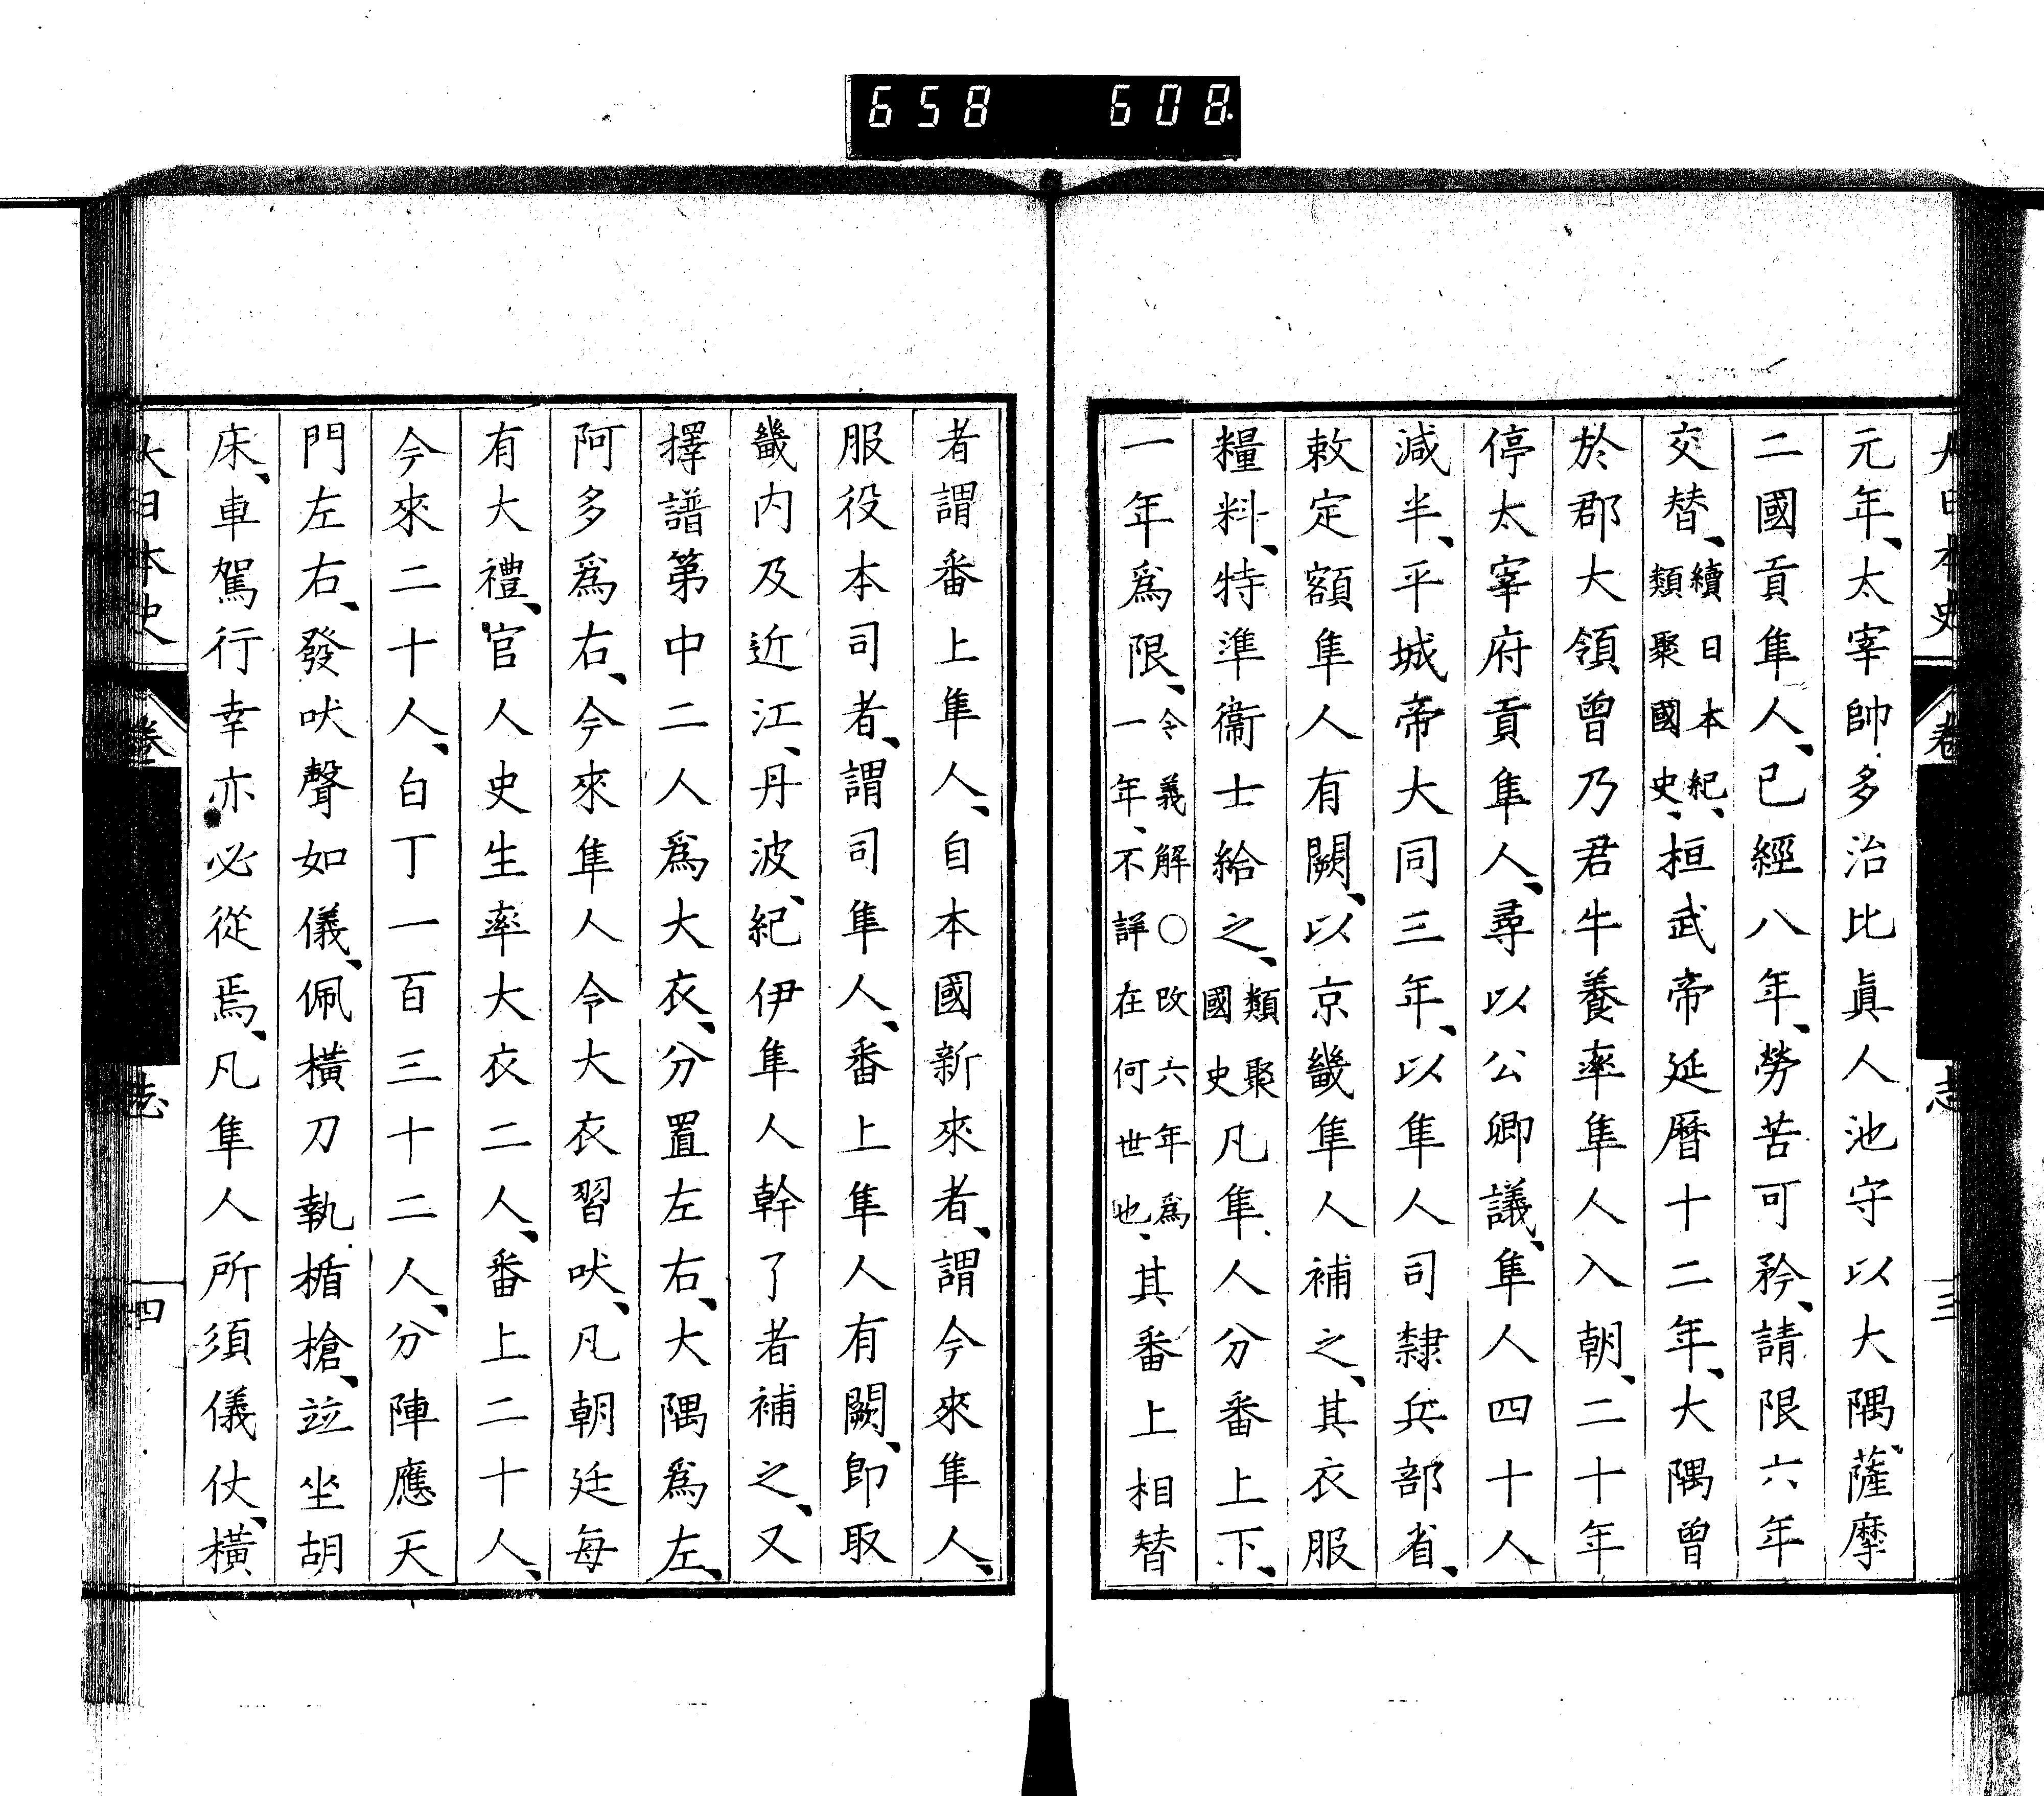 658 608.
大日本史 卷 志 三
元年、太宰帥多治比眞人池守以大隅薩摩
二國貢隼人、已經八年、勞苦可矜、請限六年
交替、續日本紀、類聚國史、桓武帝延曆十二年、大隅曾
於郡大領曾乃君牛養率隼人入朝、二十年
停太宰府貢隼人、尋以公卿議、隼人四十人
減半、平城帝大同三年、以隼人司隸兵部省、
敕定額隼人有闕、以京畿隼人補之、其衣服
糧料、特準衞士給之、類聚國史凡隼人分番上下、
一年爲限、令義解○改六年爲一年、不詳在何世也、其番上相替
者謂番上隼人、自本國新來者、謂今來隼人、
服役本司者、謂司隼人、番上隼人有闕、卽取
畿内及近江、丹波、紀伊隼人幹了者補之、又
擇譜第中二人爲大衣、分置左右、大隅爲左、
阿多爲右、今來隼人令大衣習吠、凡朝廷每
有大禮、官人史生率大衣二人、番上二十人、
今來二十人、白丁一百三十二人、分陣應天
門左右、發吠聲如儀、佩橫刀執楯槍、竝坐胡
床、車駕行幸亦必從焉、凡隼人所須儀仗、橫
大日本史 卷 志 四